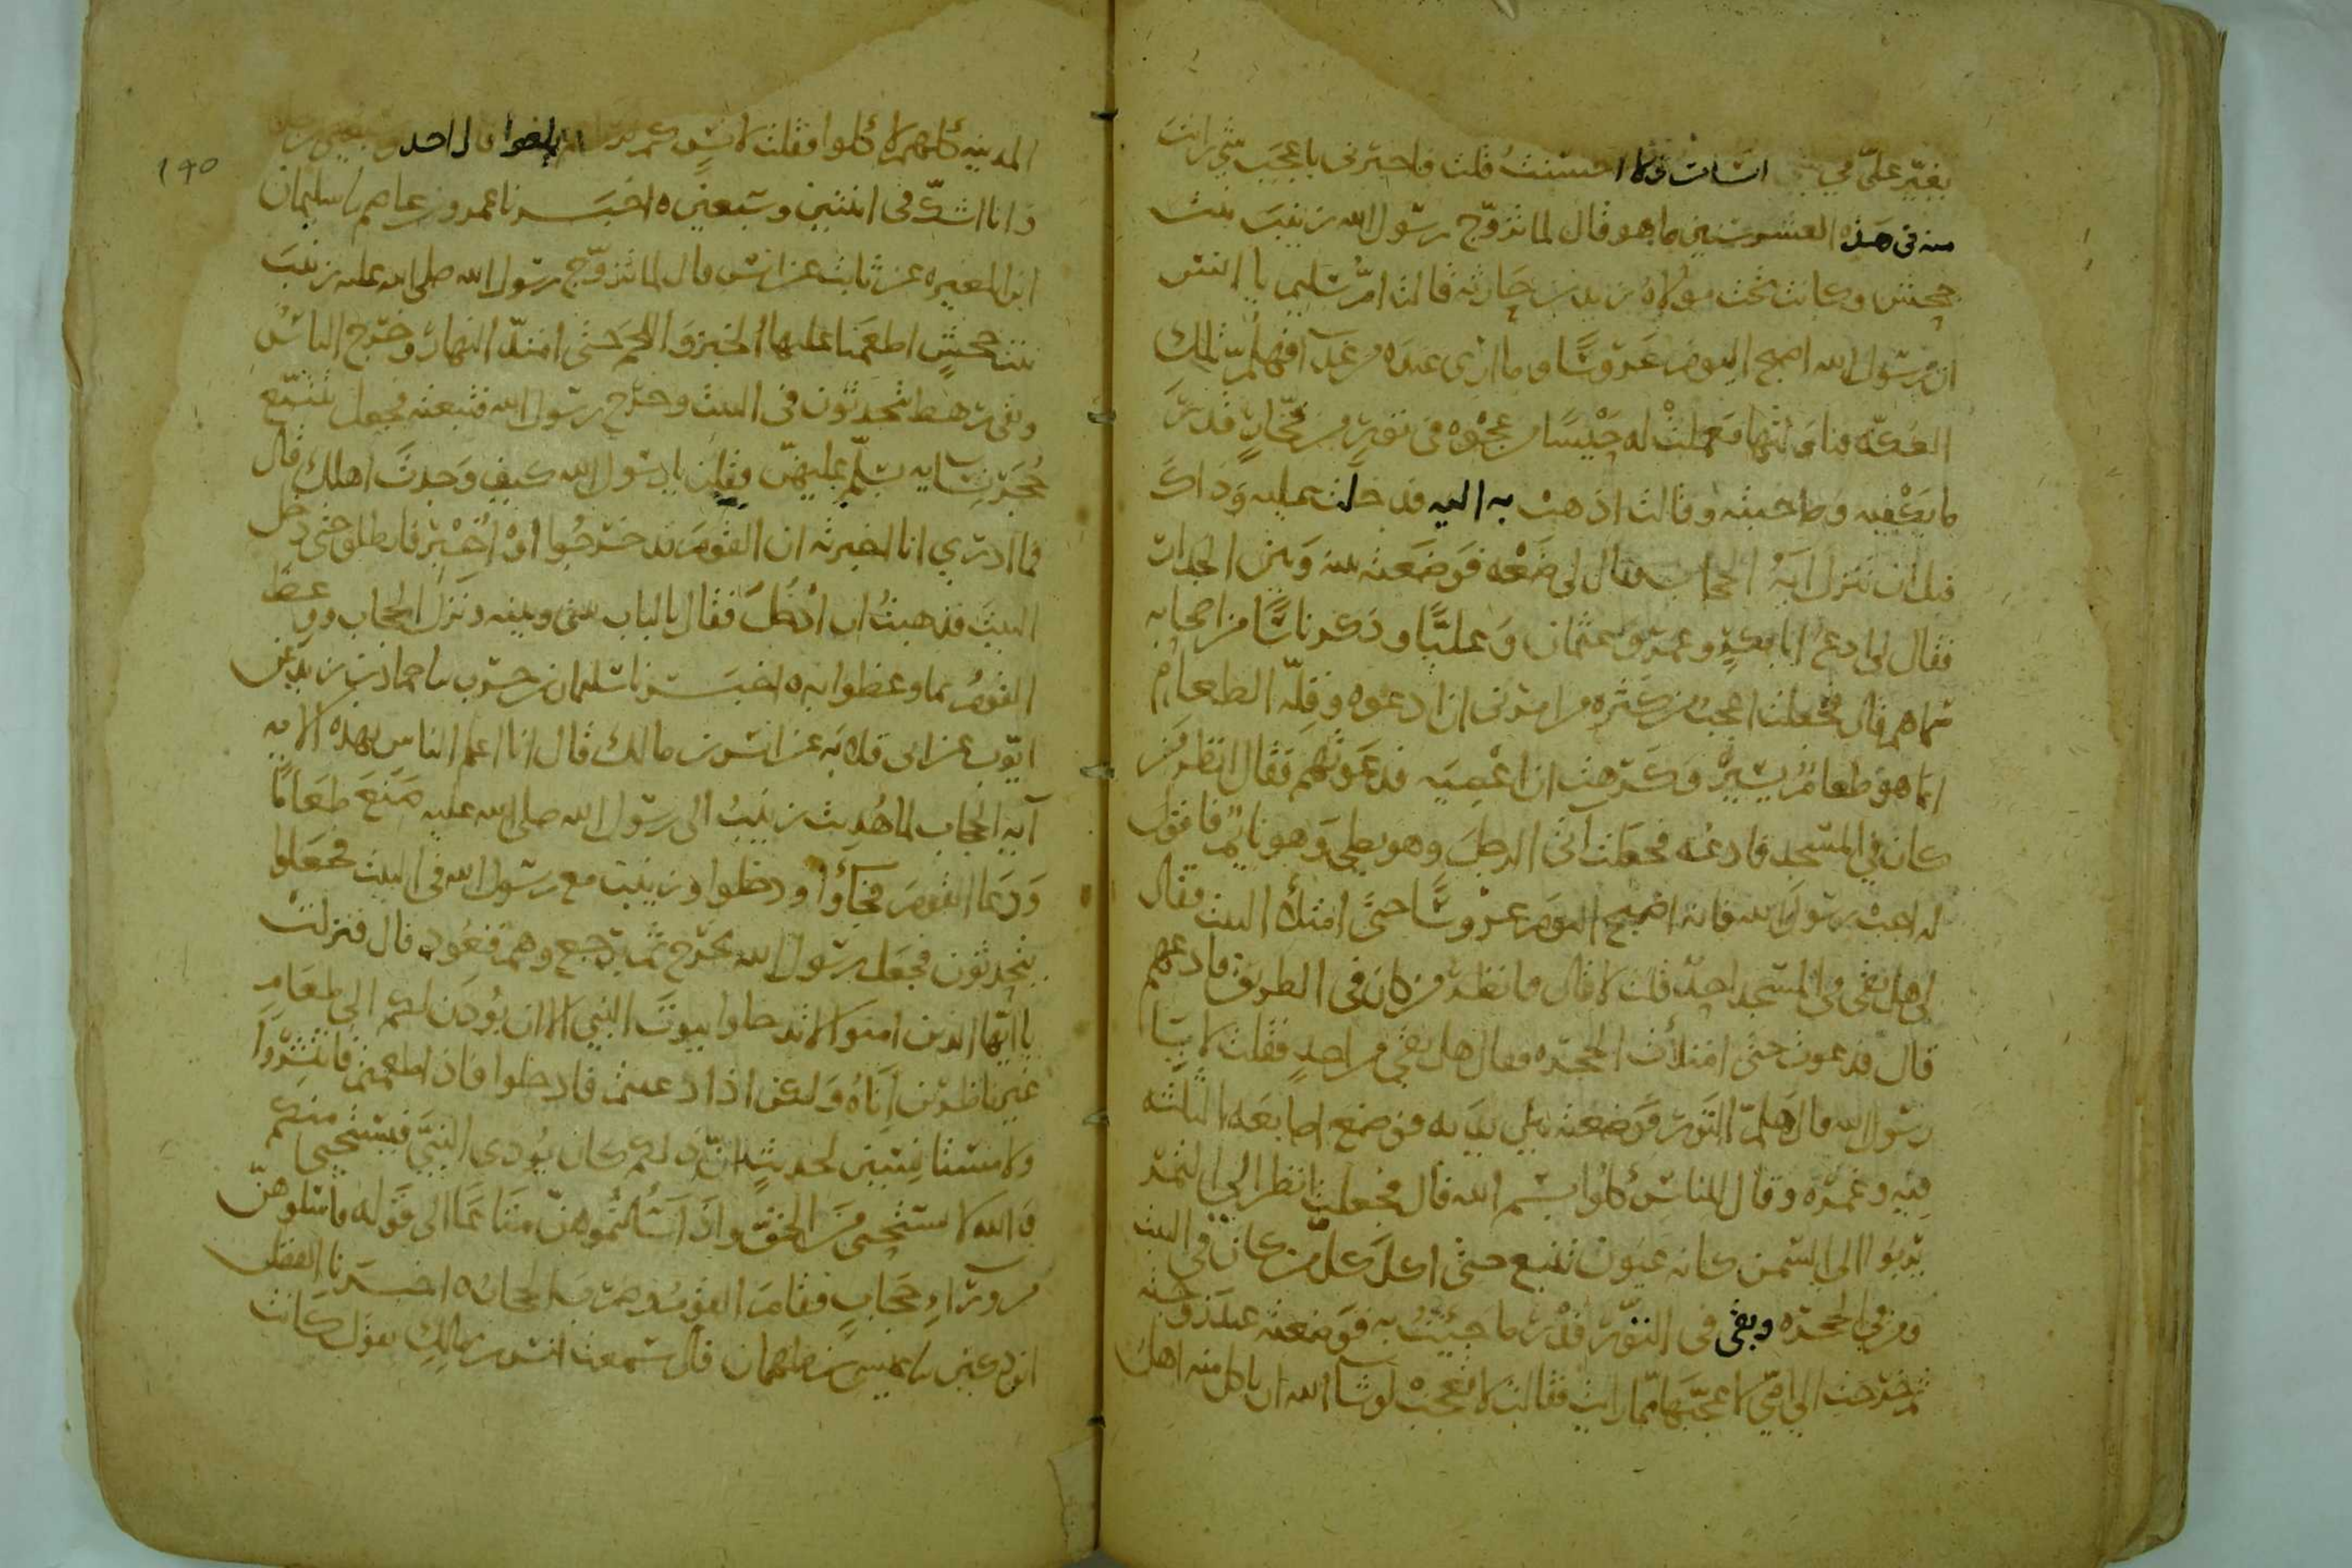 يغير علي في شي اسات ولا احسنت قلت فاخبرني باعجب شي رايت
منه في هذه العشر سنين ما هو قال لما تزوج رسول الله زينب بنت
جحش وكانت تحت مولاه زيد بن حارثه قالت ام سليم يا انس
ان رسول الله اصبح اليوم عروسا وما ارى عنده من غدآ فهلم تلك
العكه فناولتها فعملت له حيسا من عجوه في تور من فخار قدر
ما يكفيه وصاحبته وقالت اذهب به اليه فدخلت عليه وذاك
قبل ان تنزل ايه الحجاب فقال لي ضعه فوضعته بينه وبين الجدار
فقال لي ادع ابا بكر وعمر وعثمان وعليا وذكر ناسا من اصحابه
سماهم قال فجعلت اعجب من كثره من امرني ان ادعوه وقله الطعام
انما هو طعام يسير وكرهت ان اعصيه فدعوتهم فقال انظر من
كان في المسجد فادعه فجعلت آتي الرجل وهو يصلي وهو نايم فاقول
له اجب رسول الله فانه اصبح اليوم عروسا حتى امتلأ البيت فقال
لي هل بقي في المسجد احد قلت لا قال فانظر من كان في الطريق فادعهم
قال فدعوت حتى امتلأت الحجره فقال هل بقي من احد فقلت لا يا
رسول الله قال هلم التور فوضعته بين يديه فوضع اصابعه الثلثه
فيه وغمزه وقال للناس كلوا بسم الله قال فجعلت انظر الى التمر
يربوا الى السمن كانه عيون تنبع حتى اكل كل من كان في البيت
ومن في الحجره وبقي في التور قدر ما جيئت به فوضعته عند زوجته
ثم خرجت الى امي لاعجبها مما رايت فقالت لا تعجب لو شا الله ان ياكل منه اهل
١٩٥
المدينه كلهم لاكلوا فقلت لانس كم بلغوا قال احد وسبعين رجلا
وانا اشك في اثنين وسبعين ه اخبرنا عمرو بن عاصم نا سليمان
ابن المغيره عن ثابت عن انس قال لما تزوج رسول الله صلى الله عليه زينب
بنت جحش اطعمنا عليها الخبز واللحم حتى امتد النهار وخرج الناس
وبقي رهط يتحدثون في البيت وخرج رسول الله فتبعته فجعل يتتبع
حجر نسايه يسلم عليهن ويقلن يا رسول الله كيف وجدت اهلك قال
فما ادري انا اخبرته ان القوم قد خرجوا او اخبر فانطلق حتى دخل
البيت فذهبت ان ادخل فقال بالباب بيني وبينه ونزل الحجاب ووعظ
القوم بما وعظوا به ه اخبرنا سليمان بن حرب نا حماد بن زيد عن
ايوب عن ابي قلابه عن انس بن مالك قال انا اعلم الناس بهذه الايه
آيه الحجاب لما هديت زينب الى رسول الله صلى الله عليه صنع طعاما
ودعا القوم فجاؤا ودخلوا وزينب مع رسول الله في البيت فجعلوا
يتحدثون فجعل رسول الله يخرج ثم يرجع وهم قعود قال فنزلت
يا ايها الذين امنوا لا تدخلوا بيوت النبي الا ان يؤذن لكم الى طعام
غير ناظرين اناه ولكن اذا دعيتم فادخلوا فاذا طعمتم فانتشروا
ولا مستانسين لحديث ان ذلكم كان يوذي النبي فيستحيي منكم
والله لا يستحيي من الحق واذا سألتموهن متاعا الى قوله فاسلوهن
من ورآء حجاب فقام القوم وضرب الحجاب ه اخبرنا الفضل
ابن دكين نا عيسى بن طهمان قال سمعت انس بن مالك يقول كانت